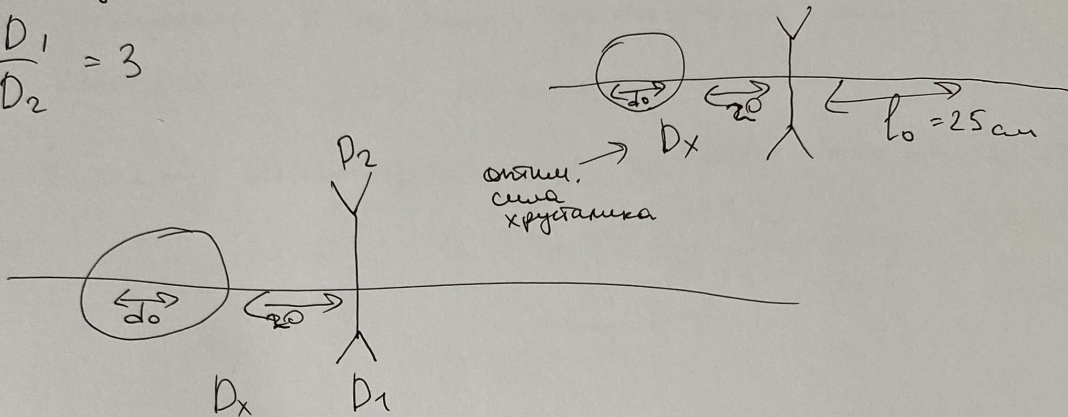 D₁
— = 3
D₂
d₀
Dₓ
l₀ = 25 см
оптим.
сила
хрусталика
D₂
d₀
Dₓ
D₁